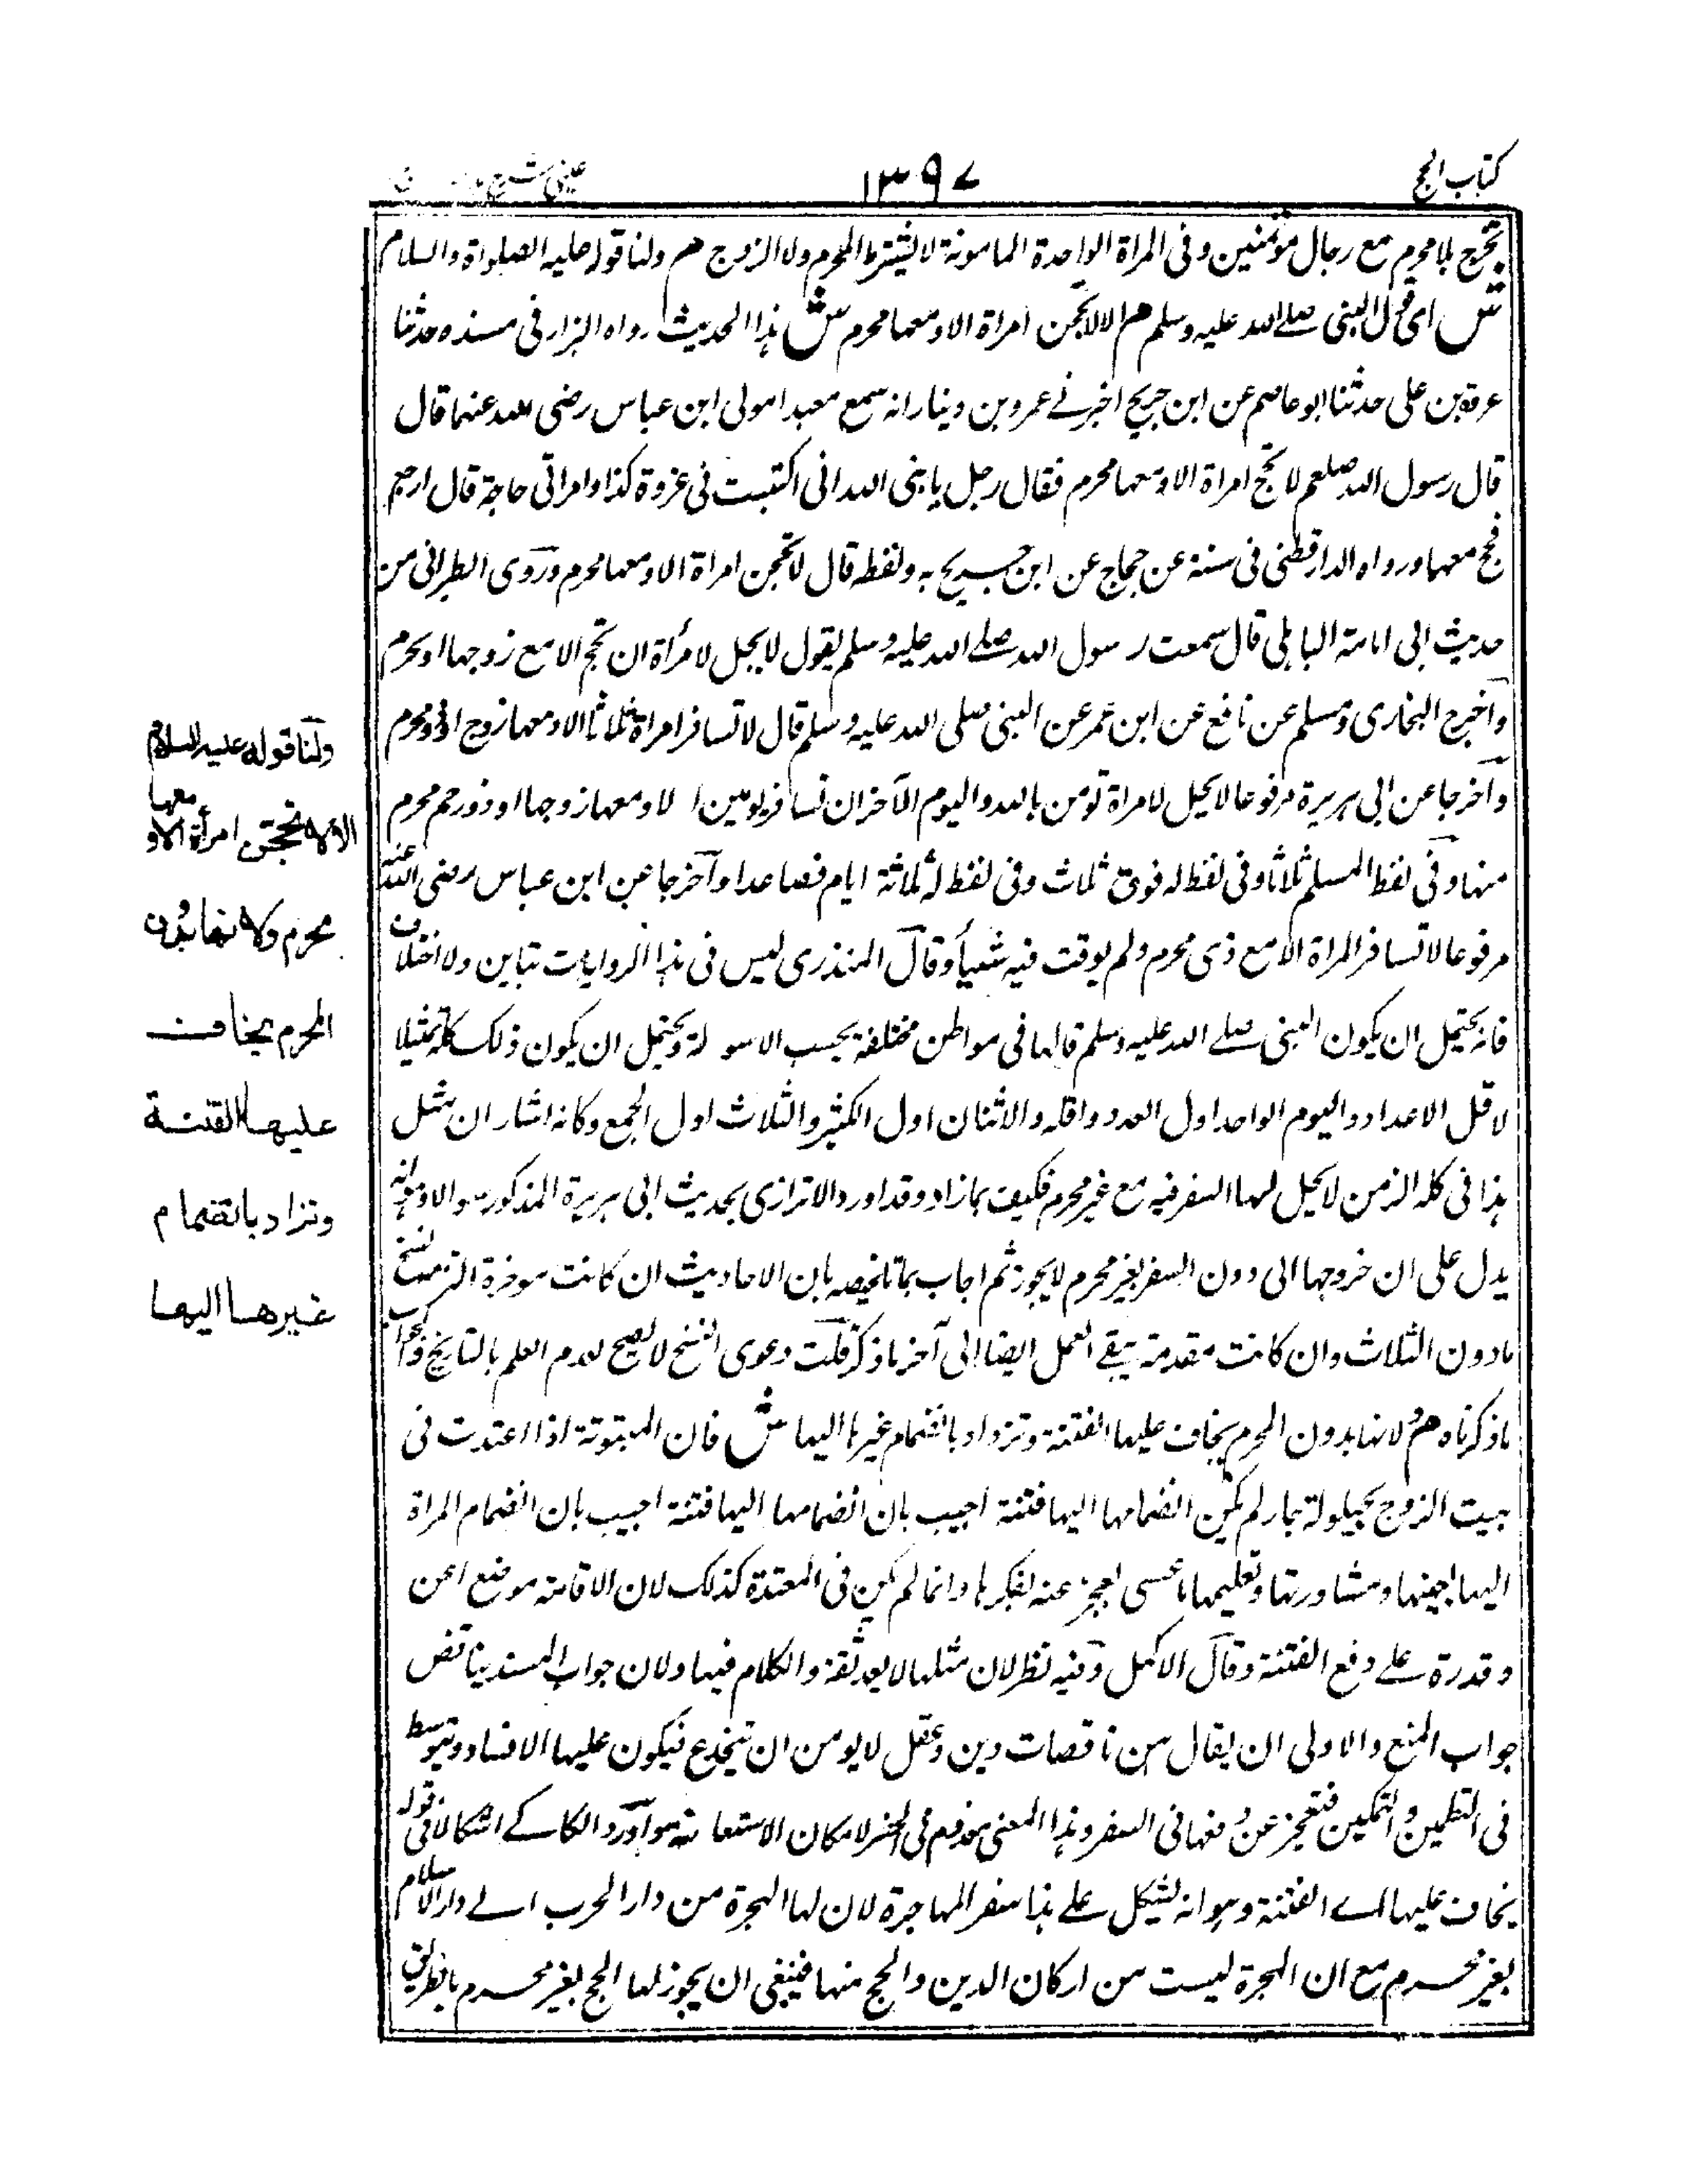 كتاب الحج
١٣٩٧
عيني شرح
تخرج بلا محرم مع رجال مؤتمنين وفى المراة الواحدة المامونة لا يشترط المحرم ولا الزوج هم ولنا قوله عليه الصلواة والسلام
ش اى قول النبى صلے الله عليه وسلم هم الا لا تحجن امراة الا ومعها محرم ش هذا الحديث رواه البزار فى مسنده حدثنا
عروة بن على حدثنا ابو عاصم عن ابن جريج اخبرنے عمرو بن دينار انه سمع معبدا مولى ابن عباس رضى الله عنهما قال
قال رسول الله صلعم لا تحج امراة الا ومعها محرم فقال رجل يا نبى الله انى اكتتبت فى غزوة كذا وامراتى حاجة قال ارجع
فحج معها ورواه الدارقطنى فى سننه عن حجاج عن ابن جريج به ولفظه قال لا تحجن امراة الا ومعها محرم وروى الطبرانى من
حديث ابى امامة الباهلى قال سمعت رسول الله صلے الله عليه وسلم يقول لا يحل لامرأة ان تحج الا مع زوجها او محرم
واخرج البخارى ومسلم عن نافع عن ابن عمر عن النبى صلى الله عليه وسلم قال لا تسافر امراة ثلاثا الا ومعها زوج او ذو محرم
واخرجا عن ابى هريرة مرفوعا لا يحل لامراة تؤمن بالله واليوم الآخر ان تسافر يومين الا ومعها زوجها او ذو رحم محرم
منها وفى لفظ المسلم ثلاثا وفى لفظ له فوق ثلاث وفى لفظ له ثلاثة ايام فصاعدا وآخرجا عن ابن عباس رضى الله عنه
مرفوعا لا تسافر المراة الا مع ذى محرم ولم يوقت فيه شيأ وقال المنذرى ليس فى هذا الروايات تباين ولا اختلاف
فانه يحتمل ان يكون النبى صلے الله عليه وسلم قالها فى مواطن مختلفة بحسب الاسولة ويحتمل ان يكون ذلك كله تمثيلا
لاقل الاعداد واليوم الواحد اول العدد واقله والاثنان اول الكثير والثلاث اول الجمع وكانه اشار ان مثل
هذا فى كله الزمن لا يحل لها السفر فيه مع غير محرم فكيف بما زاد وقد اورد الاترازى بحديث ابى هريرة المذكور سوالا وهو انه
يدل على ان خروجها الى دون السفر بغير محرم لا يجوز ثم اجاب بما تلخيصه بان الاحاديث ان كانت موخرة
مادون الثلاث وان كانت مقدمة يبقے العمل ايضا الى آخر ما ذكر قلت دعوى النسخ لا يصح لعدم العلم بالتاريخ والجواب
ما ذكرناه هم ولانها بدون المحرم يخاف عليها الفتنة وتزداد بانضمام غيرها اليها ش فان المبتوتة اذا اعتدت فى
بيت الزوج بحيلولة بما لم يكن انضمامها اليها فتنة اجيب بان انضمامها اليها فتنة اجيب بان انضمام المراة
اليها ومشاورتها وتعليمها ما عسى تعجز عنه بفكرها وانما لم يكن فى المعتدة كذلك لان الاقامة موضع امن
وقدرة علے دفع الفتنة وقال الاكمل وفيه نظر لان مثلها لا يعد ثقة والكلام فيها ولان جواب السند يناقض
جواب المنع والاولى ان يقال هن ناقصات دين وعقل لا يومن ان تنخدع فيكون عليها الافساد وتتوسط
فى والتمكين فتعجز عن دفعها فى السفر وهذا المعنى معدوم فى الحضر لامكان الاستعانة واورد الكاكے اشكالا فى قوله
يخاف عليها اے الفتنة وهو انه يشكل علے هذا سفر المهاجرة لان لها الهجرة من دار الحرب الے دار الاسلام
بغير محرم مع ان الهجرة ليست من اركان الدين والحج منها فينبغى ان يجوز لها الحج بغير محرم بالطريق
ولنا قوله عليه السلام
الا لا تحجن امرأة الا ومعها
محرم ولانها بدون
المحرم يخاف
عليها الفتنة
وتزاد بانضمام
غيرها اليها